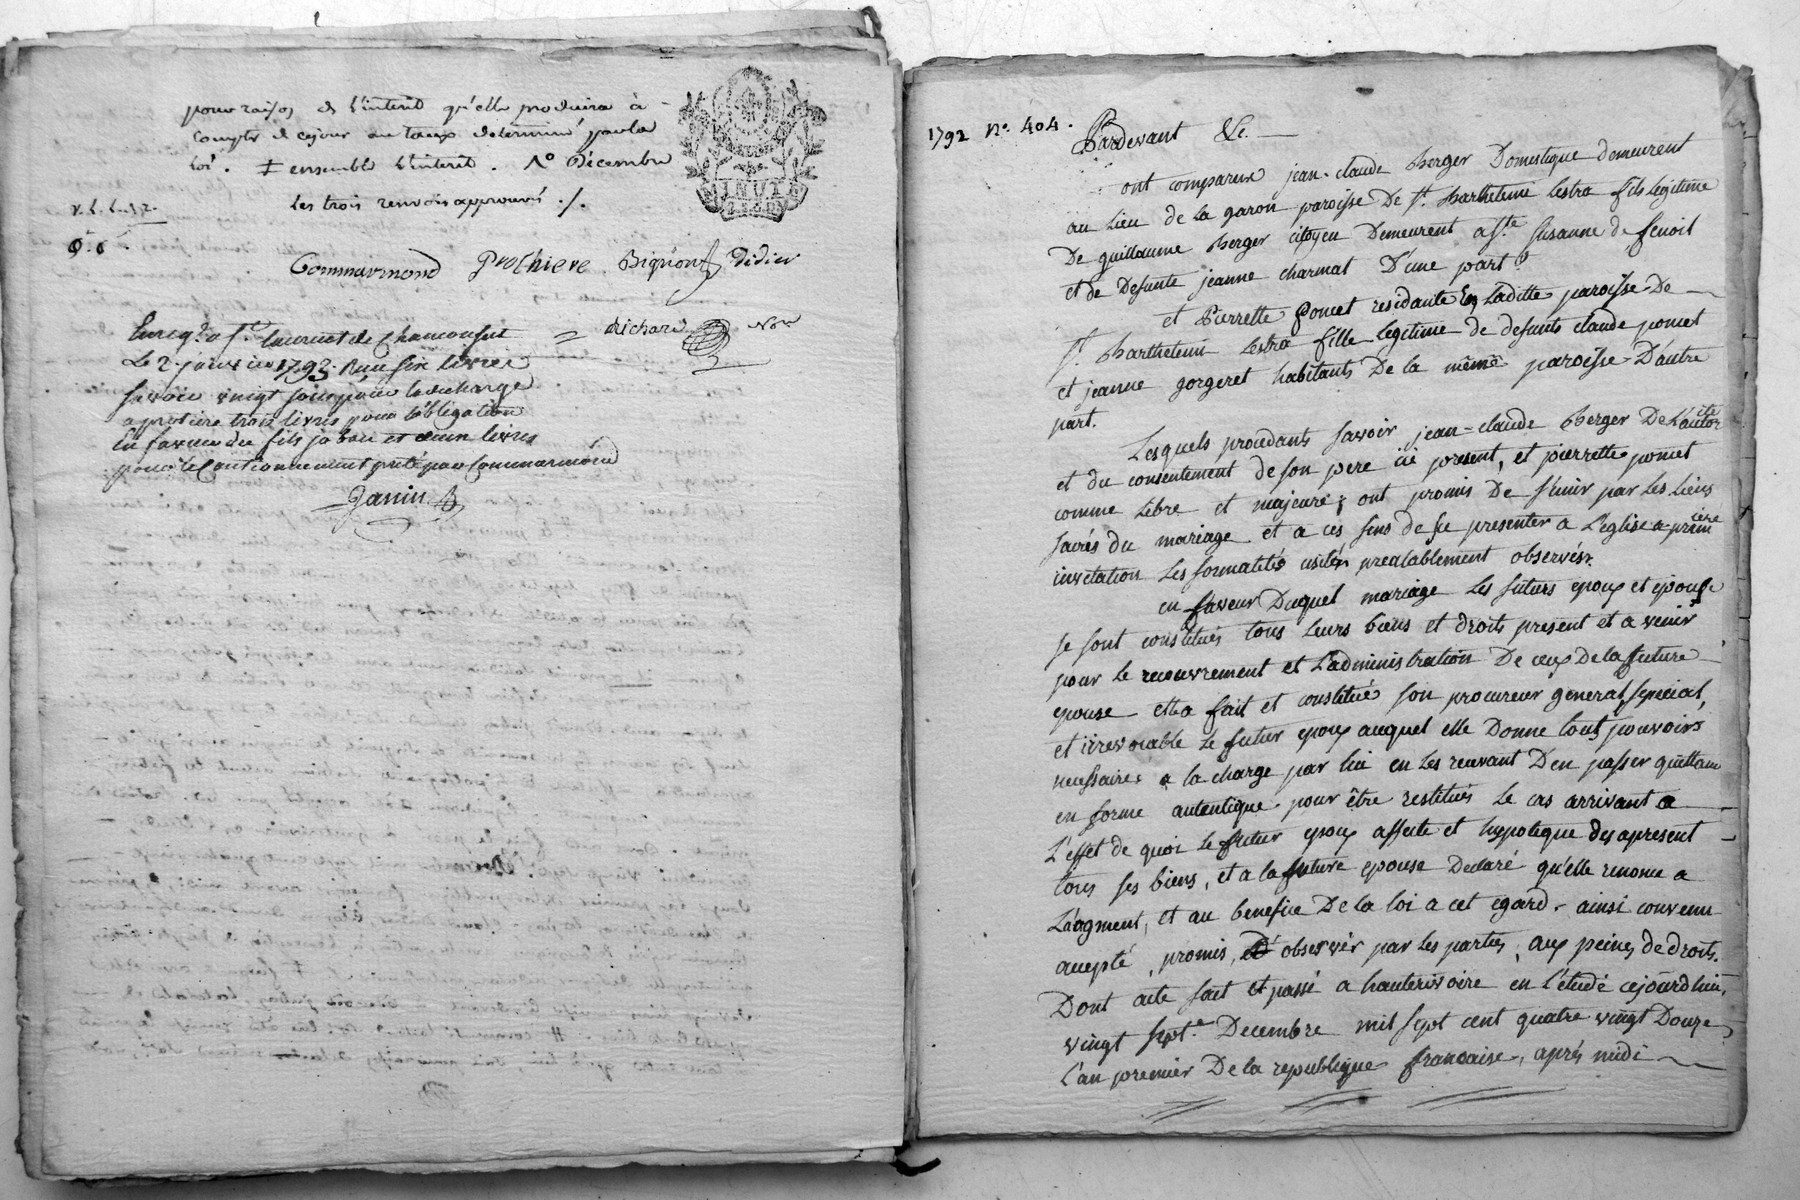 pour raison de l'interêt qu'elle produira à
compter de cejour au taux determiné par la
loi. ‡ ensemble l'interêt. 1° Décembre
les trois renvois approuvés ./.
Commarmond Prothiere Bignon Didier
richard Nore
Enregt. a St. laurent de Chamousset
Le 2. janvier 1793. Reçu six livres
savoir vingt sous pour la decharge
trois livres pour l'obligation
en faveur du fils et deux livres
pour le Cautionnement preté par Commarmond
Janin
1792 N°. 404.
Pardevant &c.
ont comparus jean-claude Berger Domestique demeurent
au Lieu de la garon paroisse De St. Barthelemi lestra fils legitime
De guillaume Berger citoyen Demeurent a Ste Susanne de fenoil
et de Defunte jeanne charmat D'une part
et Pierrette poncet residante En Laditte paroisse De
St. Barthelemi Lestra fille legitime de defunts claude poncet
et jeanne gorgeret habitants De la même paroisse D'autre
part.
Lesquels procedants savoir jean-claude Berger De L'autorité
et du consentement de son pere ici present, et pierrette poncet
comme Libre et majeure; ont promis De s'unir par les liens
sacrés du mariage et a ces fins de se presenter a L'eglise a premiere
invitation Les formalités usitées prealablement observées.
en faveur Duquel mariage Les futurs epoux et epouse
se sont constitués tous Leurs biens et droits present et a venir
pour Le recouvrement et L'administration De ceux De la future
epouse elle a fait et constitué son procureur general, special,
et irrevocable Le futur epoux auquel elle Donne tous pouvoirs
necessaires a la charge par lui en Les recevant D'en passer quittance
en forme autentique pour être restitués Le cas arrivant a
L'effet de quoi Le futur epoux affecte et hypoteque des apresent
tous ses biens, et a la future epouse Declaré qu'elle renonce a
L'augment, et au benefice De la loi a cet egard. ainsi convenu
accepté, promis, observér par Les parties, aux peines de droits.
Dont acte fait et passé a hauterivoire en L'étude cejourd'hui,
vingt sept.e Decembre mil sept cent quatre vingt Douze,
L'an premier De la republique francaise, après midi